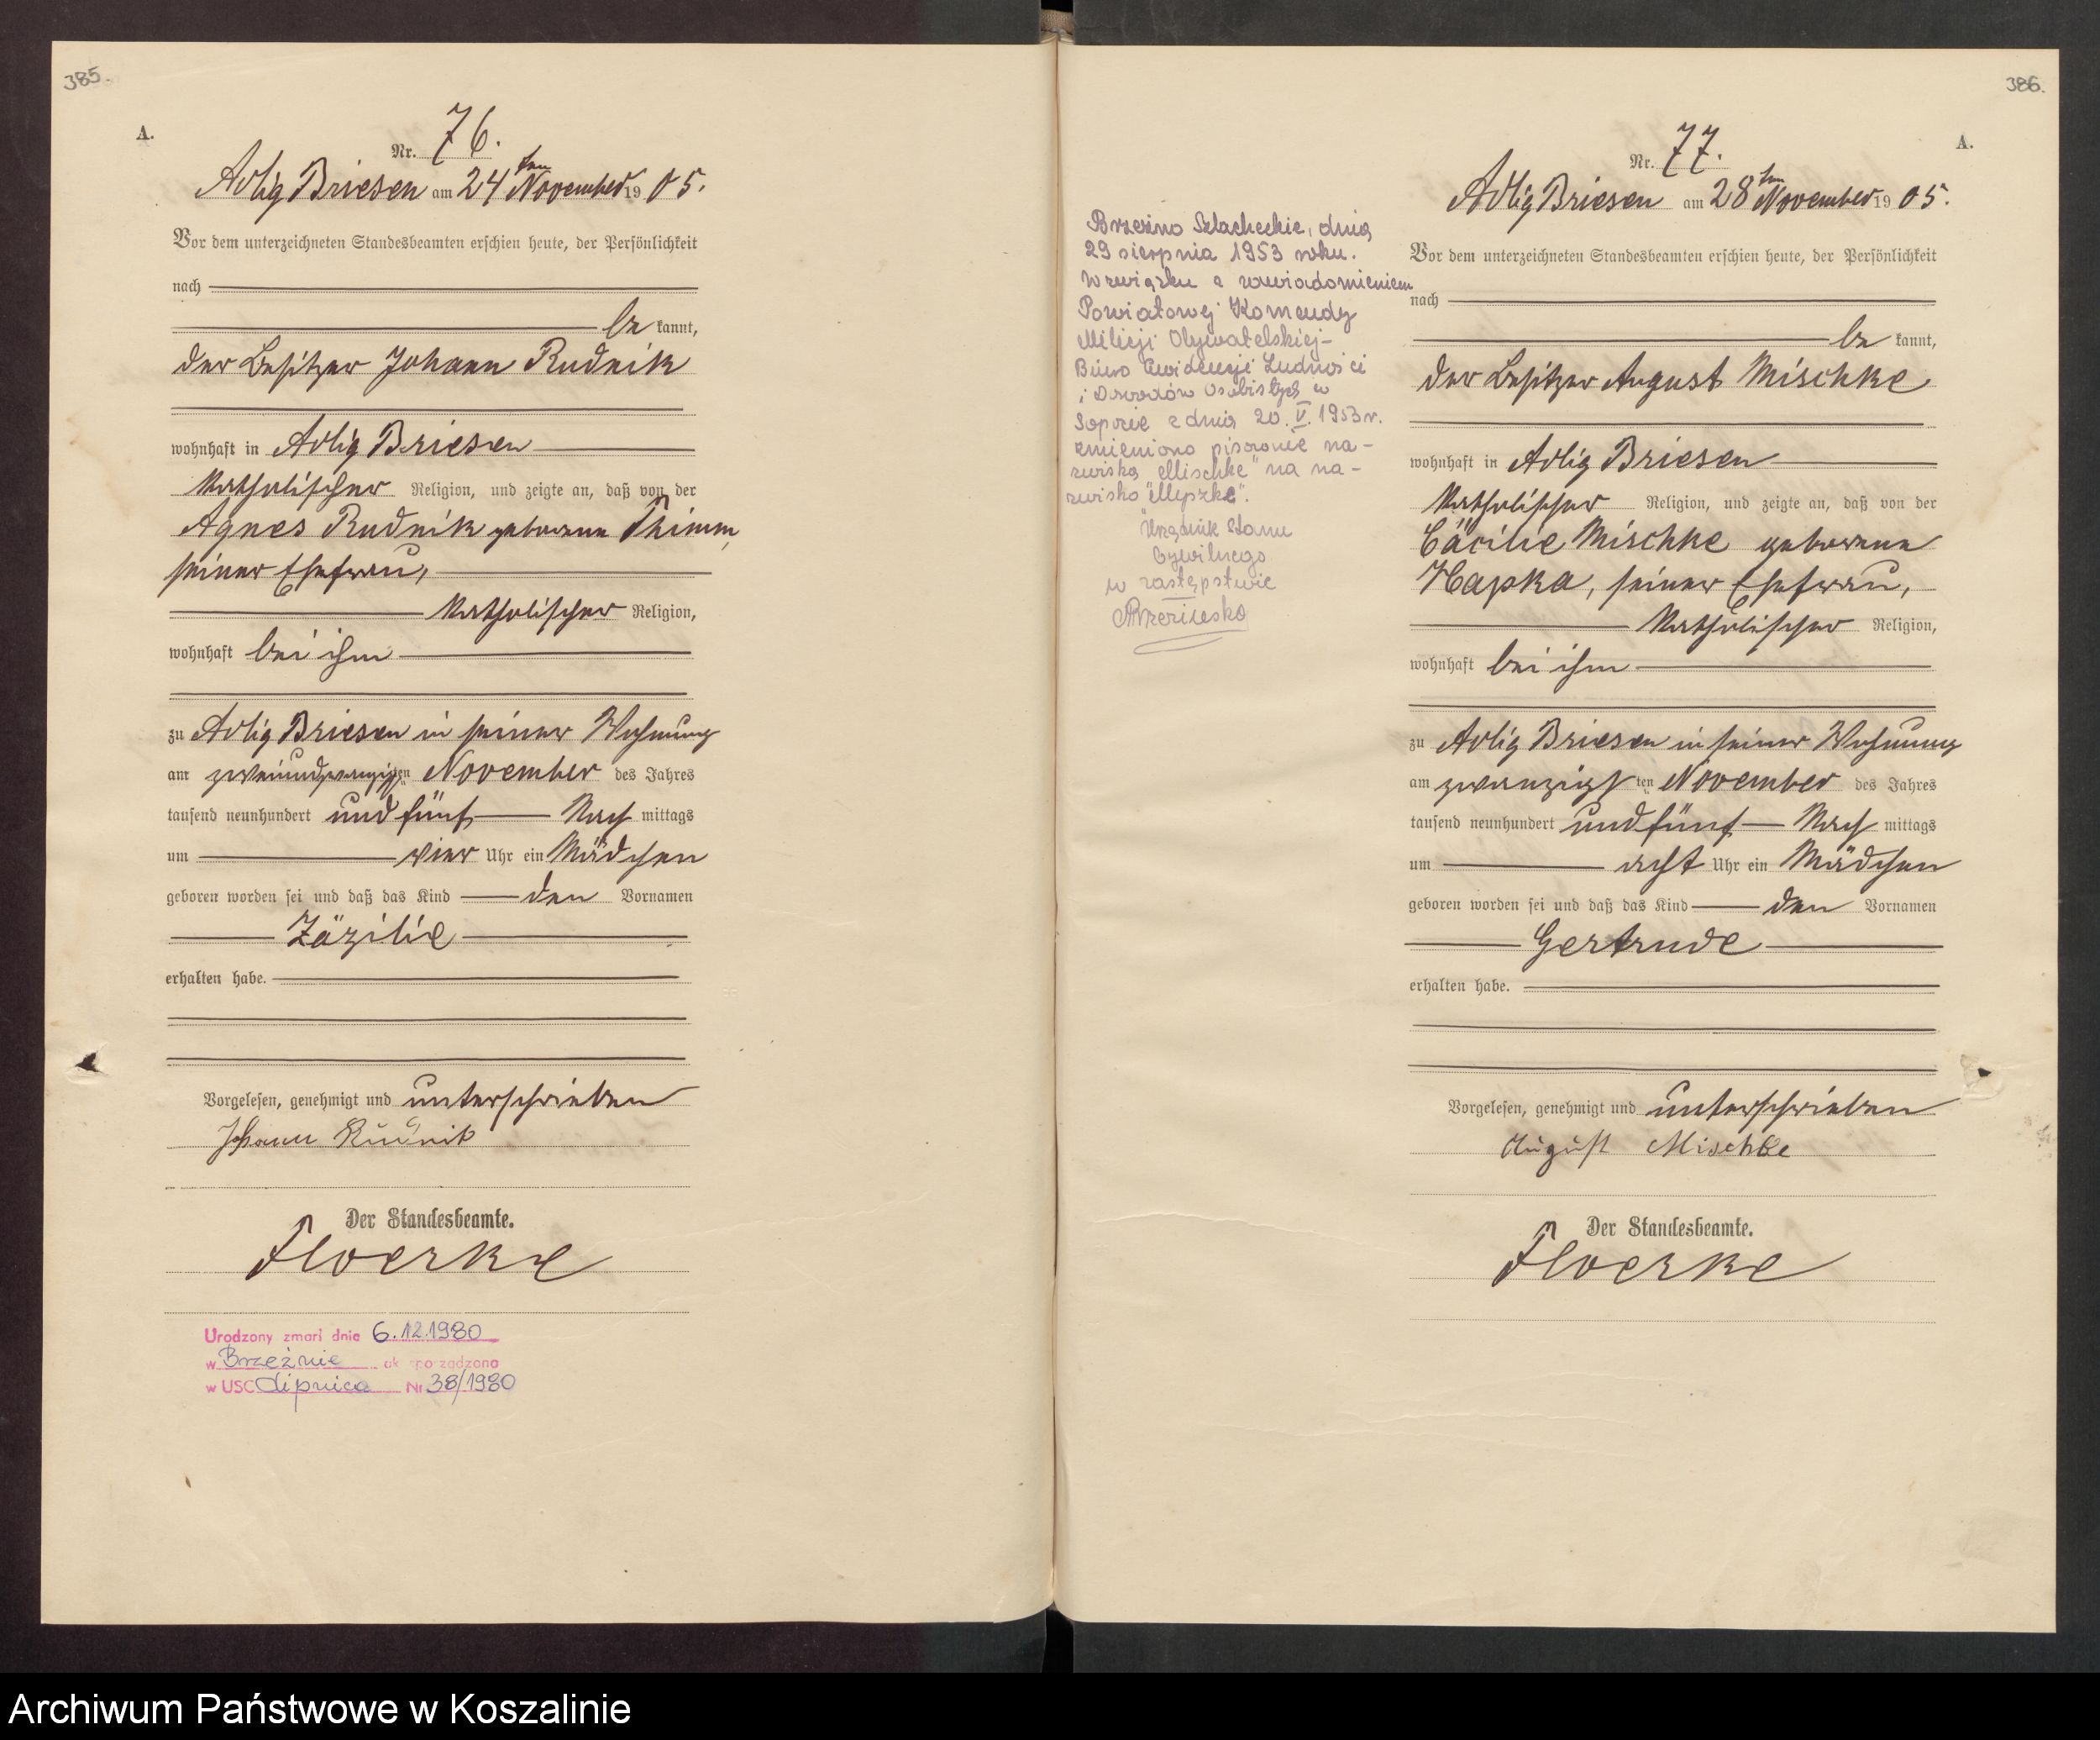 385.
A.
Nr. 76.
Adlig Briesen am 24ten November 1905.
Vor dem unterzeichneten Standesbeamten erschien heute, der Persönlichkeit
nach
be kannt,
der Besitzer Johann Rudnik
wohnhaft in Adlig Briesen
katholischer Religion, und zeigte an, daß von der
Agnes Rudnik geborene Thimm,
seiner Ehefrau,
katholischer Religion,
wohnhaft bei ihm
zu Adlig Briesen in seiner Wohnung
am zweiundzwanzigsten November des Jahres
tausend neunhundert und fünf Nach mittags
um vier Uhr ein Mädchen
geboren worden sei und daß das Kind den Vornamen
Zäzilie
erhalten habe.
Vorgelesen, genehmigt und unterschrieben
Johann Rudnik
Der Standesbeamte.
Floerke
Urodzony zmarł dnia 6.12.1980
w Brzeźnie akt sporządzono
w USC Lipnica Nr 38/1980
386.
A.
Nr. 77.
Adlig Briesen am 28ten November 1905.
Vor dem unterzeichneten Standesbeamten erschien heute, der Persönlichkeit
nach
be kannt,
der Besitzer August Mischke
wohnhaft in Adlig Briesen
katholischer Religion, und zeigte an, daß von der
Cäcilie Mischke geborene
Hapka, seiner Ehefrau,
katholischer Religion,
wohnhaft bei ihm
zu Adlig Briesen in seiner Wohnung
am zwanzigsten November des Jahres
tausend neunhundert und fünf Nach mittags
um acht Uhr ein Mädchen
geboren worden sei und daß das Kind den Vornamen
Gertrude
erhalten habe.
Vorgelesen, genehmigt und unterschrieben
August Mischke
Der Standesbeamte.
Floerke
Brzeźno Szlacheckie, dnia
29 sierpnia 1953 roku.
W związku z zawiadomieniem
Powiatowej Komendy
Milicji Obywatelskiej-
Biuro Ewidencji Ludności
i Dowodów Osobistych w
Sopocie z dnia 20.V.1953 r.
zmieniono pisownię na-
zwiska "Mischke" na na-
zwisko "Myszke".
Urzędnik Stanu
Cywilnego
w zastępstwie
Archiwum Państwowe w Koszalinie